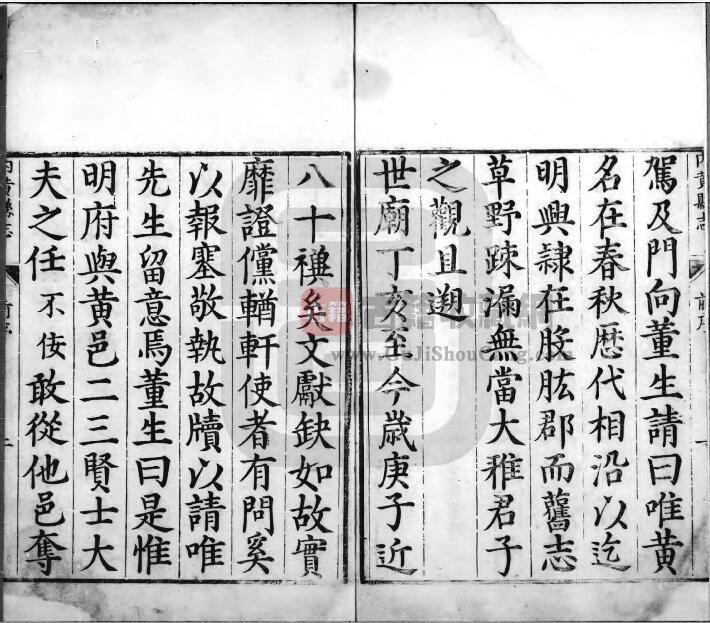 內黃縣志 前序
駕及門向董生請曰唯黃
名在春秋歷代相沿以迄
明興隷在股肱郡而舊志
草野踈漏無當大雅君子
之觀且遡
世廟丁亥至今歲庚子近
八十禩矣文獻缺如故實
靡證儻輶軒使者有問奚
以報塞敬執故牘以請唯
先生留意焉董生曰是惟
明府與黃邑二三賢士大
夫之任不佞敢從他邑奪
內黃縣志 前序
古籍
www.GuJiShouCang.com